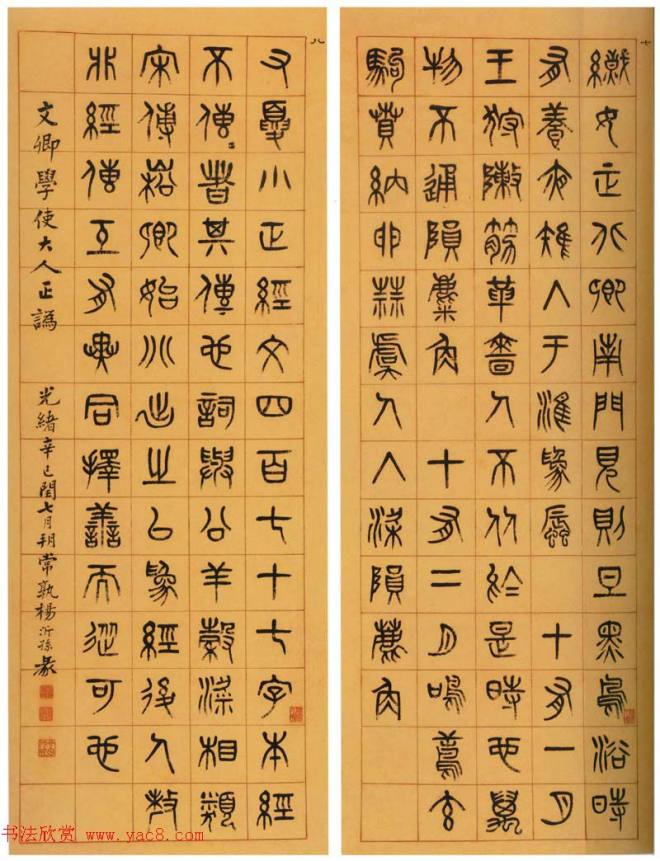 七
織女正北鄉南門見則旦黑鳥浴時
有養夜雉入于淮為蜃 十有一月
王狩陳筋革嗇人不从於是時也萬
物不通隕麋角 十有二月鳴鳶玄
駒賁納卵蒜虞人入梁隕麋角
八
右夏小正經文四百七十七字本經
不傳者其傳也詞與公羊穀梁相類
宋傅崧卿始分出之以為經後人
非經傳互有異同擇善而從可也
文卿學使大人正譌
光緒辛巳閏七月朔常孰楊沂孫篆
书法欣赏 www.yac8.com